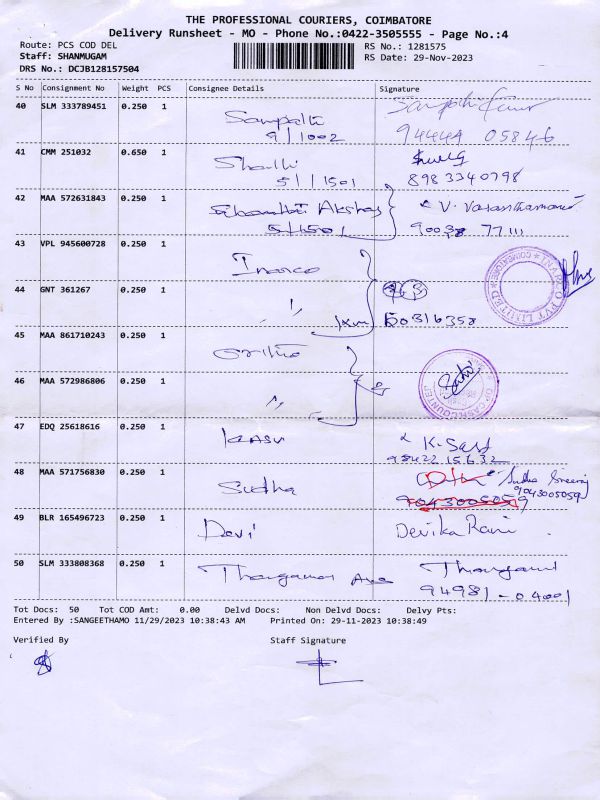 THE PROFESSIONAL COURIERS, COIMBATORE
Delivery Runsheet - MO - Phone No.:0422-3505555 - Page No.:4
Route: PCS COD DEL
RS No.: 1281575
Staff: SHANMUGAM
RS Date: 29-Nov-2023
DRS No.: DCJB128157504
S No Consignment No Weight PCS Consignee Details Signature
40 SLM 333789451 0.250 1
Sampath
9/1002 94444 05846
41 CMM 251032 0.650 1
5/1501 8983340798
42 MAA 572631843 0.250 1
Akshay V. Vasanthamani
5/1501 90038 77111
43 VPL 945600728 0.250 1
44 GNT 361267 0.250 1
45 MAA 861710243 0.250 1
46 MAA 572986806 0.250 1
CASH COUNTER
47 EDQ 25618616 0.250 1
KAASU
98422 15632
48 MAA 571756830 0.250 1
Sudha
9043005059
9043005059
49 BLR 165496723 0.250 1
Devi Devika Rani
50 SLM 333808368 0.250 1
94981-04001
Tot Docs: 50 Tot COD Amt: 0.00 Delvd Docs: Non Delvd Docs: Delvy Pts:
Entered By :SANGEETHAMO 11/29/2023 10:38:43 AM Printed On: 29-11-2023 10:38:49
Verified By Staff Signature